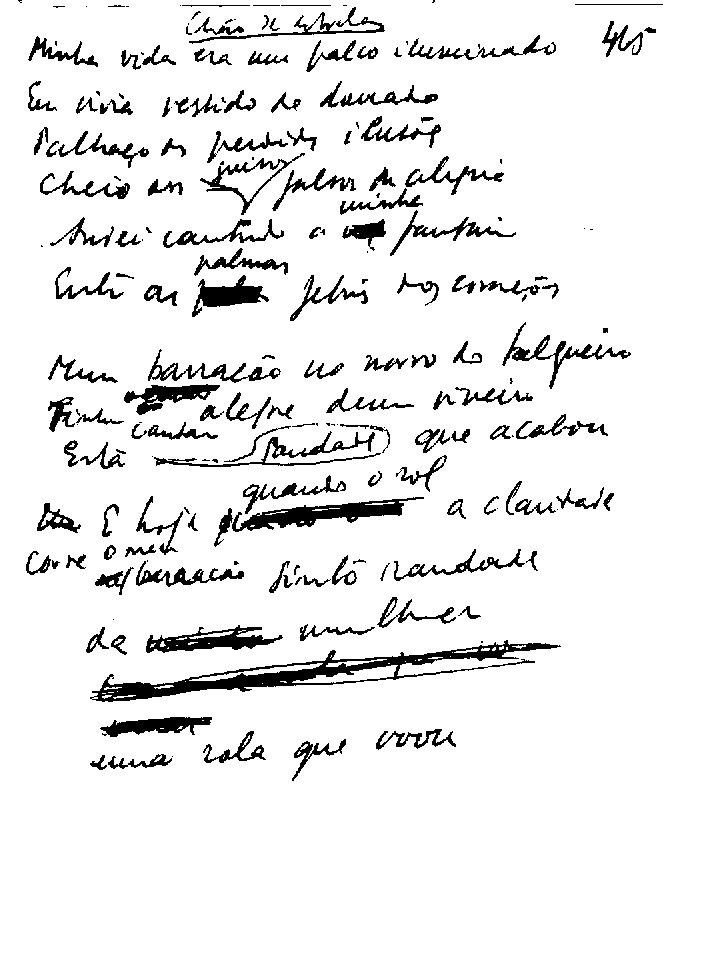 Chão de estrelas
Minha vida era um palco iluminado 465
Eu vivia vestido de dourado
Palhaço das perdidas ilusões
guizos
Cheio dos falsos da alegria
minha
Andei cantando a fantasia
palmas
Entre as febris dos corações
Meu barracão no morro do Salgueiro
Tinha cantar alegre de um viveiro
Está saudade que acabou
quando o sol
E hoje a claridade
Corre o meu
barracão sinto saudade
da mulher
uma rola que voou